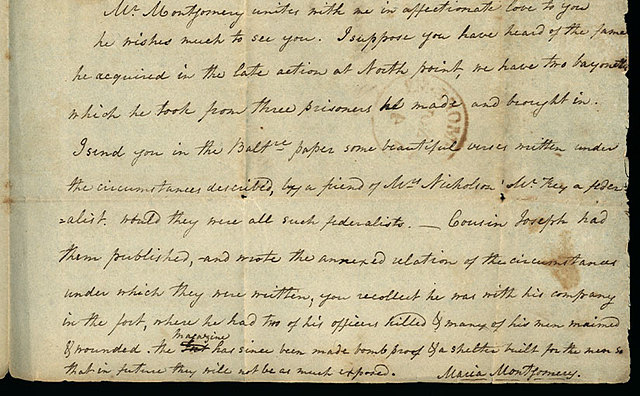 Mr. Montgomery unites with me in affectionate love to you
he wishes much to see you. I suppose you have heard of the fame
he acquired in the late action at North point, we have two bayonetts
which he took from three prisoners he made and brought in.
I send you in the Baltre paper some beautiful verses written under
the circumstances described, by a friend of Mrs Nicholson Mr Key a feder-
-alist. would they were all such federalists. — Cousin Joseph had
them published, and wrote the annexed relation of the circumstances
under which they were written, you recollect he was with his company
in the fort, where he had two of his officers killed & many of his men maimed
& wounded. the magazine has since been made bomb proof & a shelter built for the men so
that in future they will not be as much exposed. Maria Montgomery.